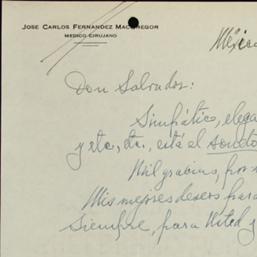 JOSE CARLOS FERNANDEZ MACGREGOR
MEDICO CIRUJANO
Méxic
Don Salvador:
Simpático, elega
y etc, etc, está el soneto
Mil gracias, por s
Mis mejores deseos para
siempre, para Usted y